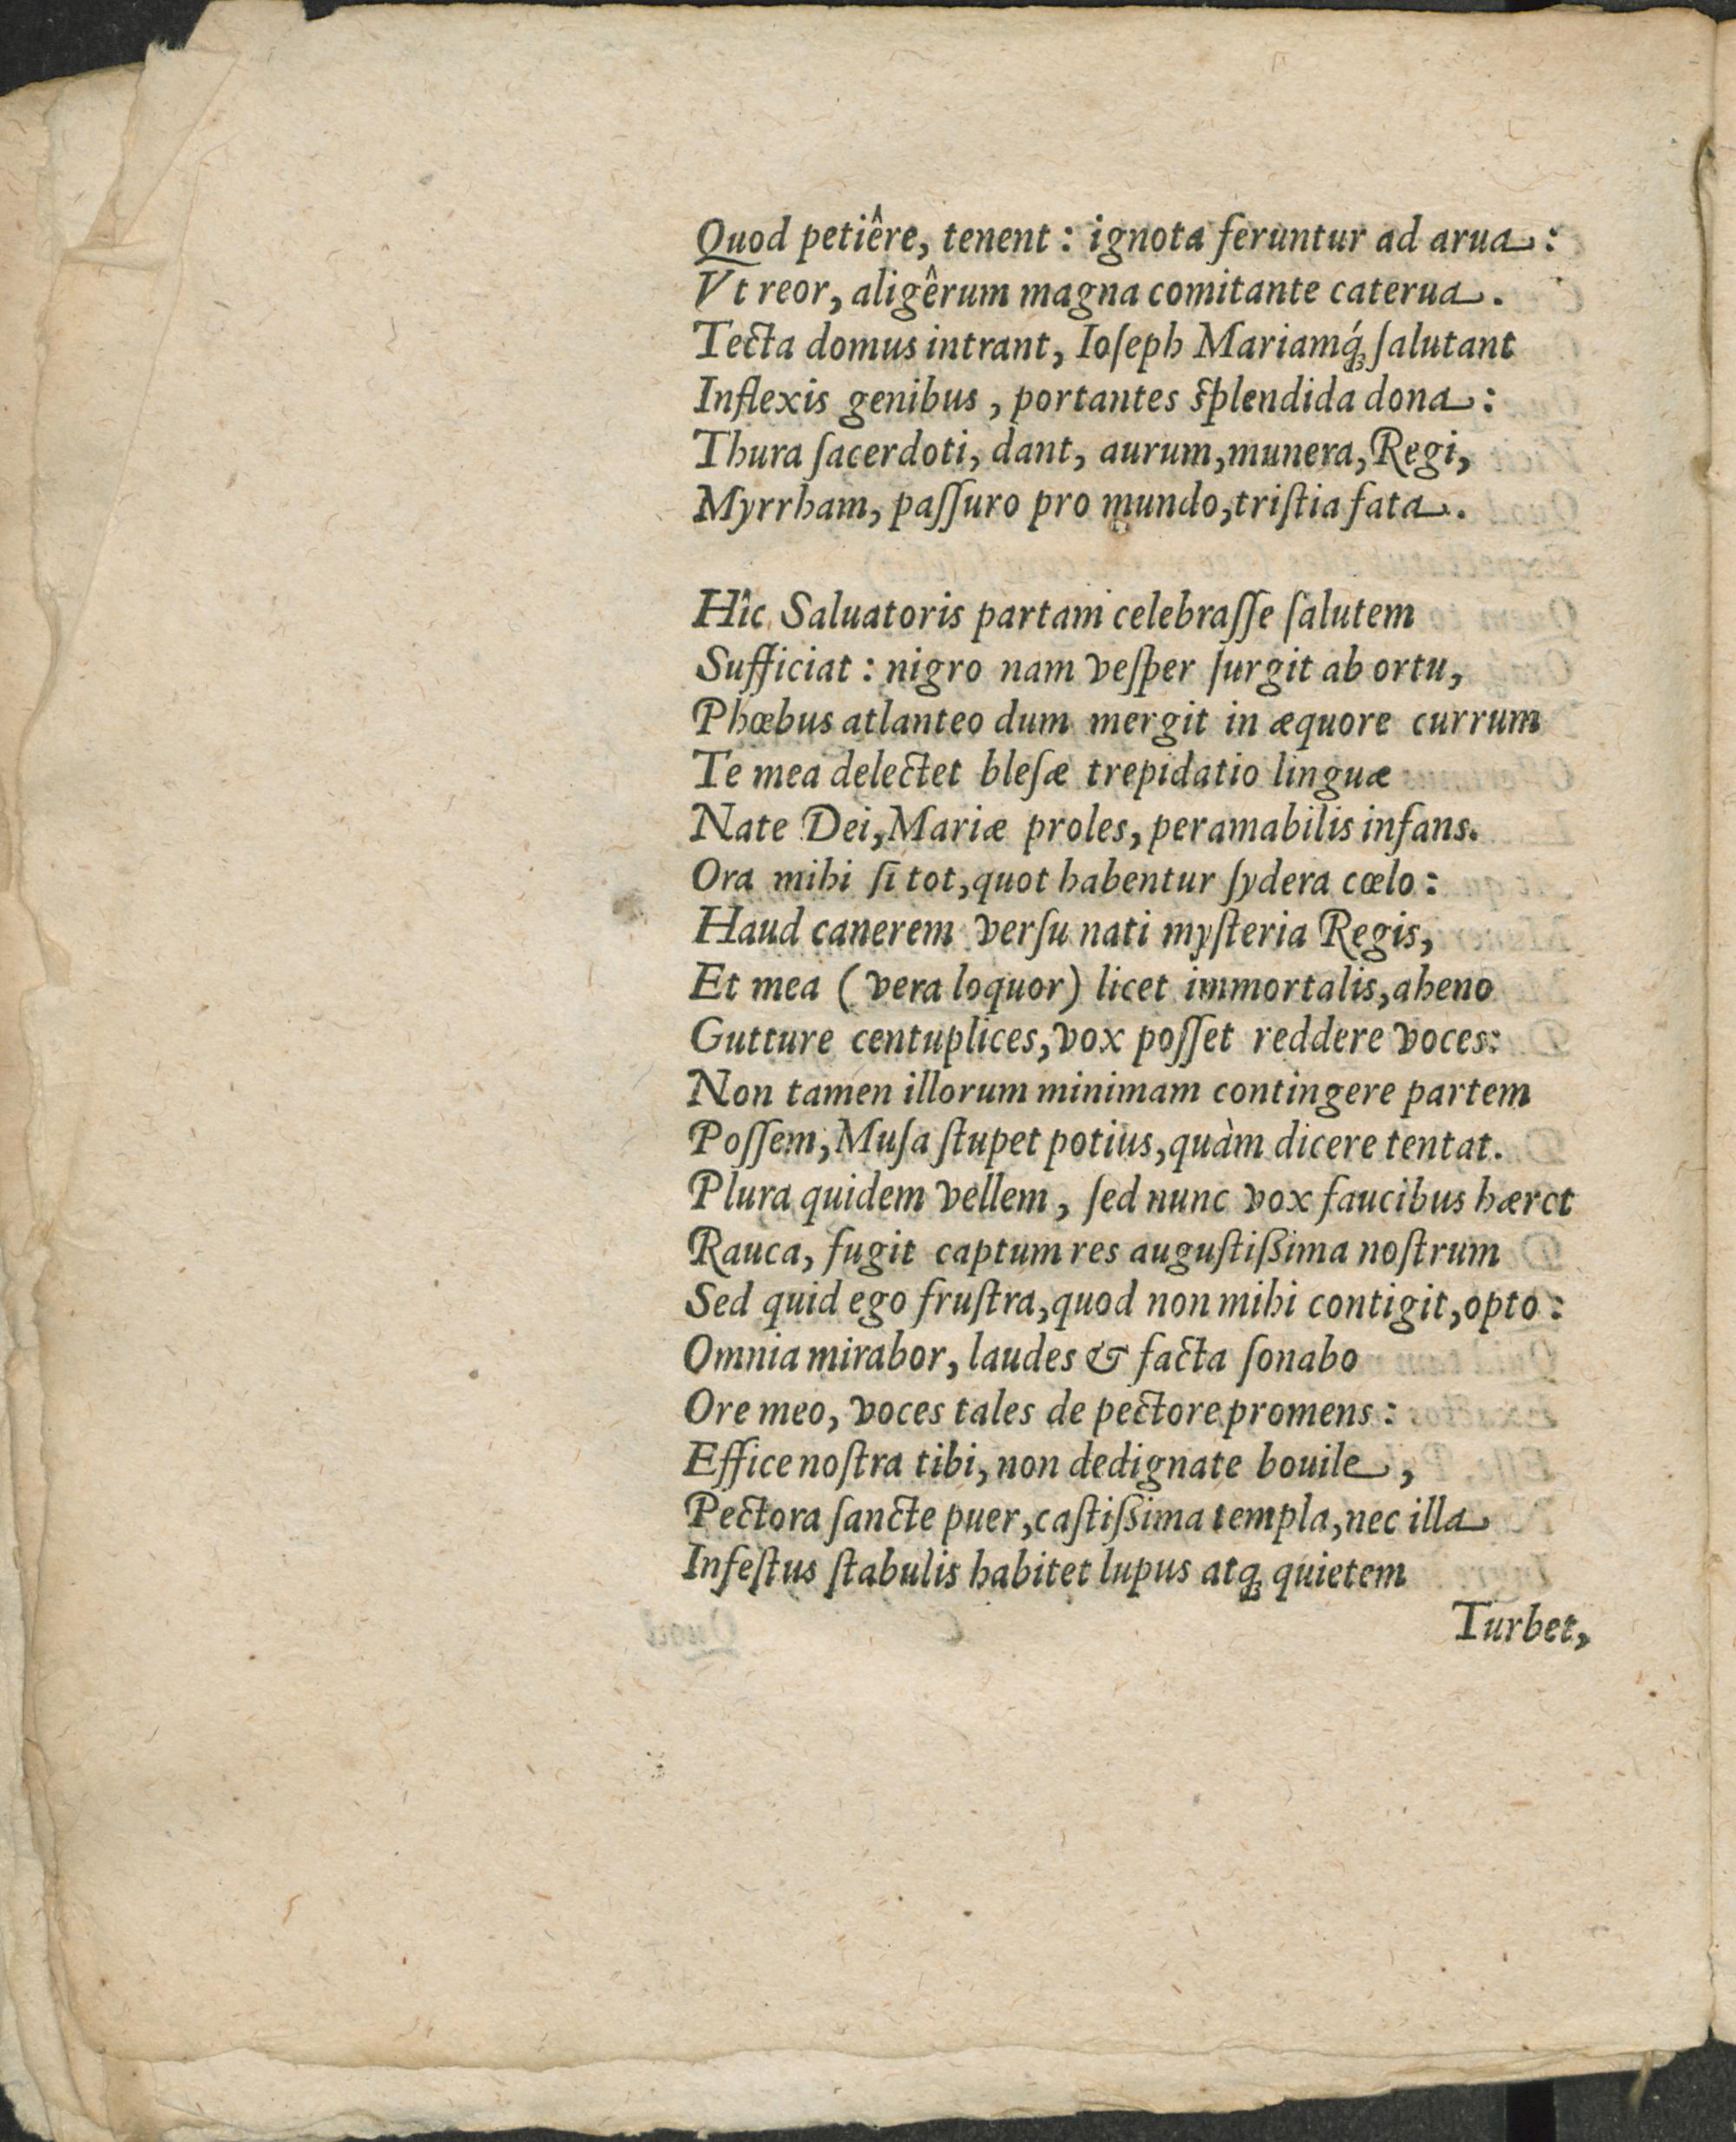 Quod petiêre, tenent: ignota feruntur ad arua:
Vt reor, aligêrum magna comitante caterua.
Tecta domus intrant, Ioſeph Mariamq́ꝫ ſalutant
Inflexis genibus, portantes ſplendida dona:
Thura ſacerdoti, dant, aurum, munera, Regi,
Myrrham, paſſuro pro mundo, triſtia fata.

Hîc Saluatoris partam celebraſſe ſalutem
Sufficiat: nigro nam veſper ſurgit ab ortu,
Phœbus atlanteo dum mergit in æquore currum
Te mea delectet bleſæ trepidatio linguæ
Nate Dei, Mariæ proles, peramabilis infans.
Ora mihi ſi tot, quot habentur ſydera cœlo:
Haud canerem verſu nati myſteria Regis,
Et mea (vera loquor) licet immortalis, aheno
Gutture centuplices, vox poſſet reddere voces:
Non tamen illorum minimam contingere partem
Poſſem, Muſa ſtupet potius, quàm dicere tentat.
Plura quidem vellem, ſed nunc vox faucibus hæret
Rauca, fugit captum res auguſtiſſima noſtrum
Sed quid ego fruſtra, quod non mihi contigit, opto:
Omnia mirabor, laudes & facta ſonabo
Ore meo, voces tales de pectore promens:
Effice noſtra tibi, non dedignate bouile,
Pectora ſancte puer, caſtiſſima templa, nec illa
Infeſtus ſtabulis habitet lupus atqꝫ quietem
Turbet,